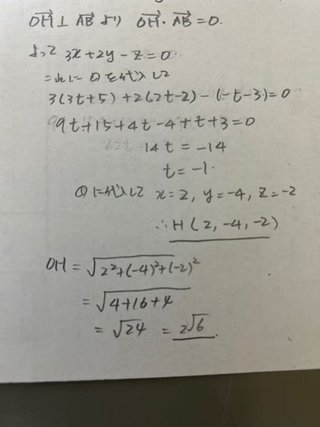 OH⊥ABより OH・AB=0.
よって 3x+2y-z=0
これに①を代入して
3(3t+5)+2(2t-2)-(-t-3)=0
9t+15+4t-4+t+3=0
14t=-14
t=-1.
①に代入して x=2, y=-4, z=-2
∴H(2, -4, -2)
OH=√2²+(-4)²+(-2)²
=√4+16+4
=√24 =2√6.